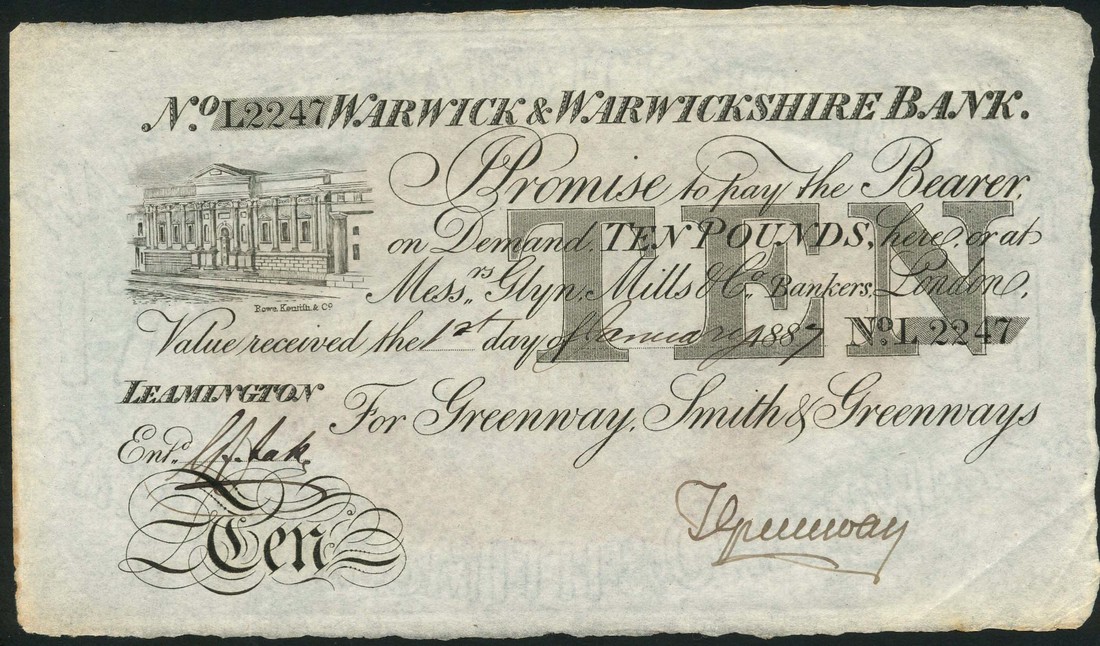 No. L2247 WARWICK & WARWICKSHIRE BANK.
I Promise to pay the Bearer,
on Demand, TEN POUNDS, here, or at
Messrs. Glyn, Mills & Co. Bankers, London,
Rowe, Kentish & Co
Value received the 1st day of January 1887 No. L 2247
TEN
LEAMINGTON
For Greenway, Smith & Greenways
Entd.
Ten
Greenway